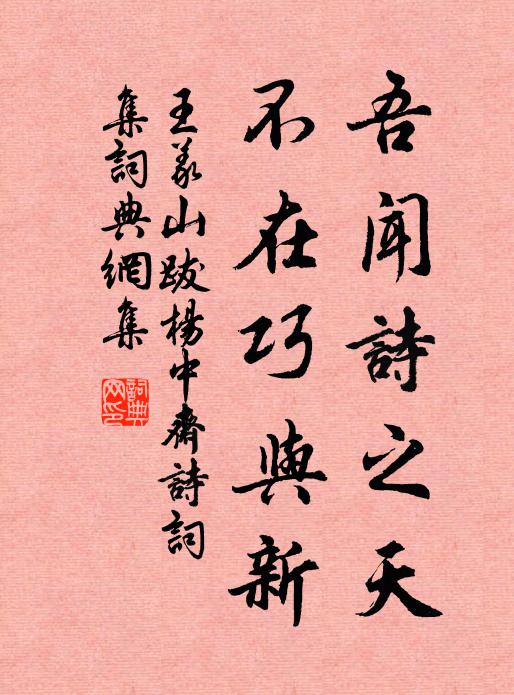 吾聞詩之天
不在巧與新
王義山跋楊中齋詩詞
集詞典網集
詞典
网印